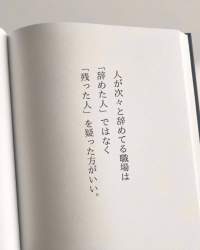 人が次々と辞めてる職場は
「辞めた人」ではなく
「残った人」を疑った方がいい。